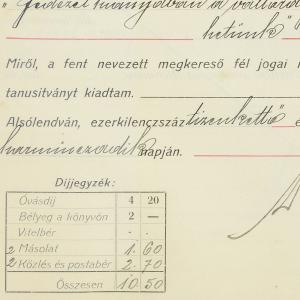 " fedezet hiányában a
hetünk"
Miről, a fent nevezett megkereső fél jogai
tanusitványt kiadtam.
Alsólendván, ezerkilenczszáz tizenkettő
harminczadik napján.
Díjjegyzék:
Óvásdíj 4 20
Bélyeg a könyvön 2 —
Vitelbér - -
2 Másolat 1. 60
2 Közlés és postabér 2. 70
Összesen 10 50